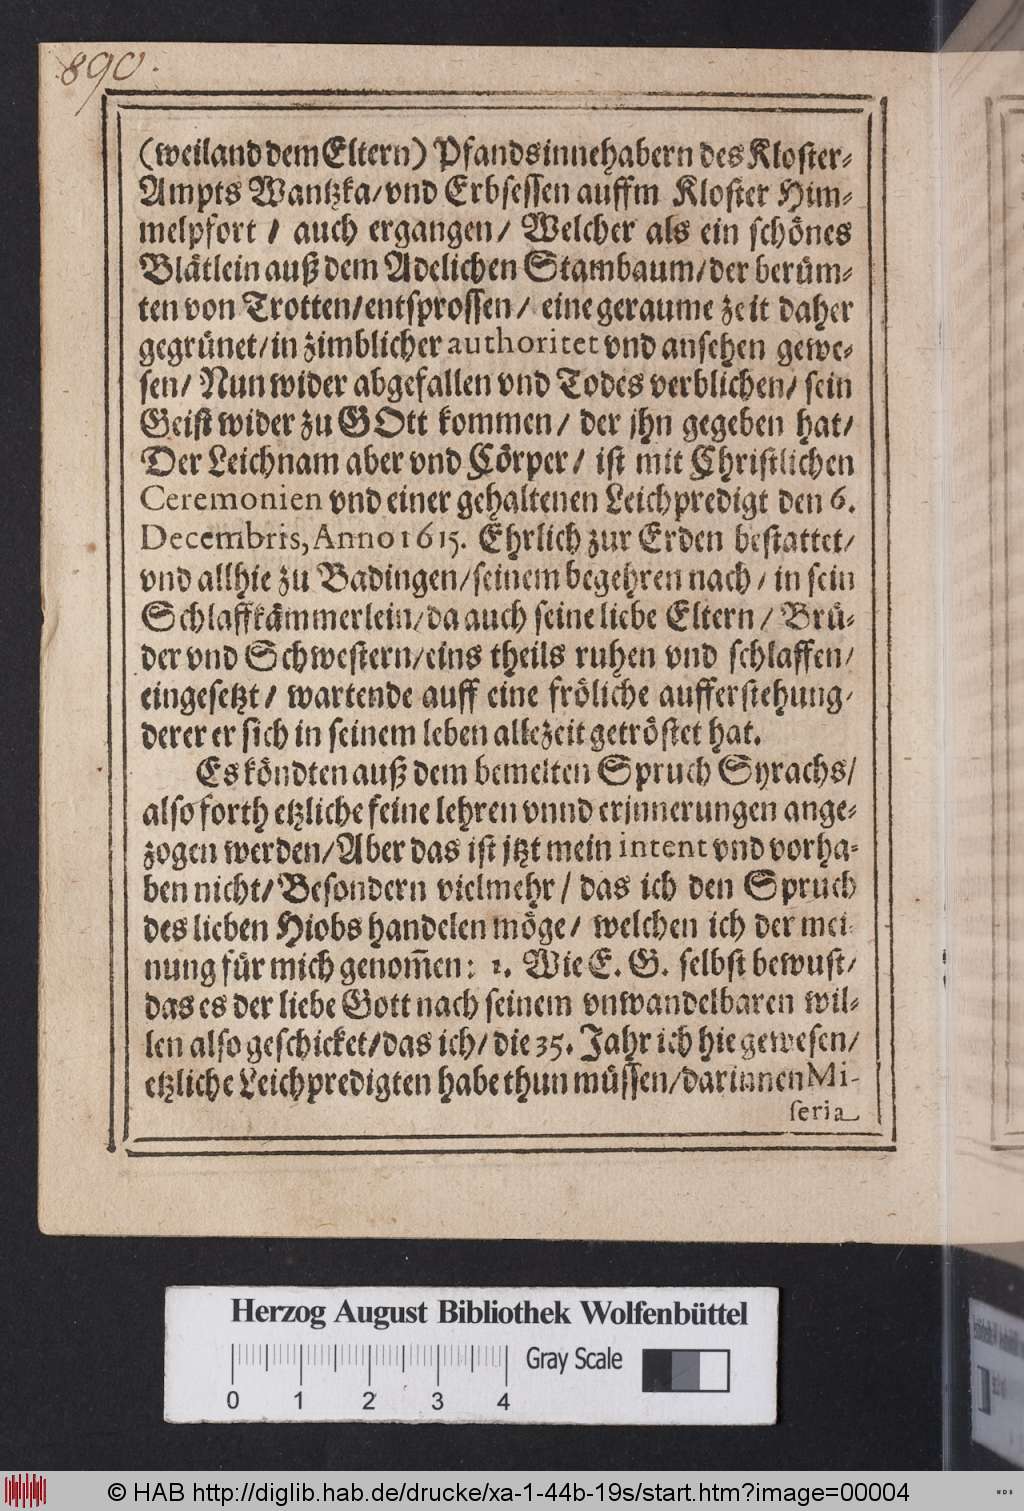 890.
(weiland dem Eltern) Pfandsinnehabern des Kloster-
Ampts Wantzka/ vnd Erbsessen auffm Kloster Him-
melpfort / auch ergangen/ Welcher als ein schönes
Blätlein auß dem Adelichen Stambaum/ der berüm-
ten von Trotten/ entsprossen/ eine geraume zeit daher
gegrünet/ in zimblicher authoritet vnd ansehen gewe-
sen/ Nun wider abgefallen vnd Todes verblichen/ sein
Geist wider zu GOtt kommen/ der jhn gegeben hat/
Der Leichnam aber vnd Cörper/ ist mit Christlichen
Ceremonien vnd einer gehaltenen Leichpredigt den 6.
Decembris, Anno 1615. Ehrlich zur Erden bestattet/
vnd allhie zu Badingen/ seinem begehren nach/ in sein
Schlaffkämmerlein/ da auch seine liebe Eltern/ Brü-
der vnd Schwestern/ eins theils ruhen vnd schlaffen/
eingesetzt/ wartende auff eine fröliche aufferstehung/
derer er sich in seinem leben allezeit getröstet hat.
Es köndten auß dem bemelten Spruch Syrachs/
also forth etzliche feine lehren vnnd erjnnerungen ange-
zogen werden/ Aber das ist jtzt mein intent vnd vorha-
ben nicht/ Besondern vielmehr/ das ich den Spruch
des lieben Hiobs handelen möge/ welchen ich der mei-
nung für mich genom̃en: 1. Wie E. G. selbst bewust/
das es der liebe Gott nach seinem vnwandelbaren wil-
len also geschicket/ das ich/ die 35. Jahr ich hie gewesen/
etzliche Leichpredigten habe thun müssen/ darinnen Mi-
seria
Herzog August Bibliothek Wolfenbüttel
Gray Scale
0 1 2 3 4
© HAB http://diglib.hab.de/drucke/xa-1-44b-19s/start.htm?image=00004